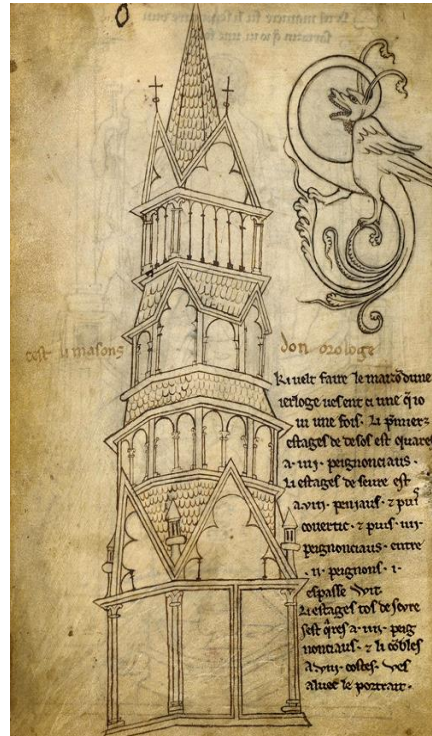 cest li masons don orologe
Ki velt faire le maizō dune
ierloge ves ent ci une q̄ io
vi une fois. Li p̄miers
estages de desos est quares
a. iiii. peignonciaus.
Li estages deseure est
a. viii. peniaus. ⁊ puis
covertic. ⁊ puis. iiii.
peignonciaus. entre
.ii. peignons. i.
espasse wit.
Li estages tos deseure
sest q̄res a. iiii. peig
nonciaus. ⁊ li cōbles
a. viii. costes. ves
aluec le portrait.